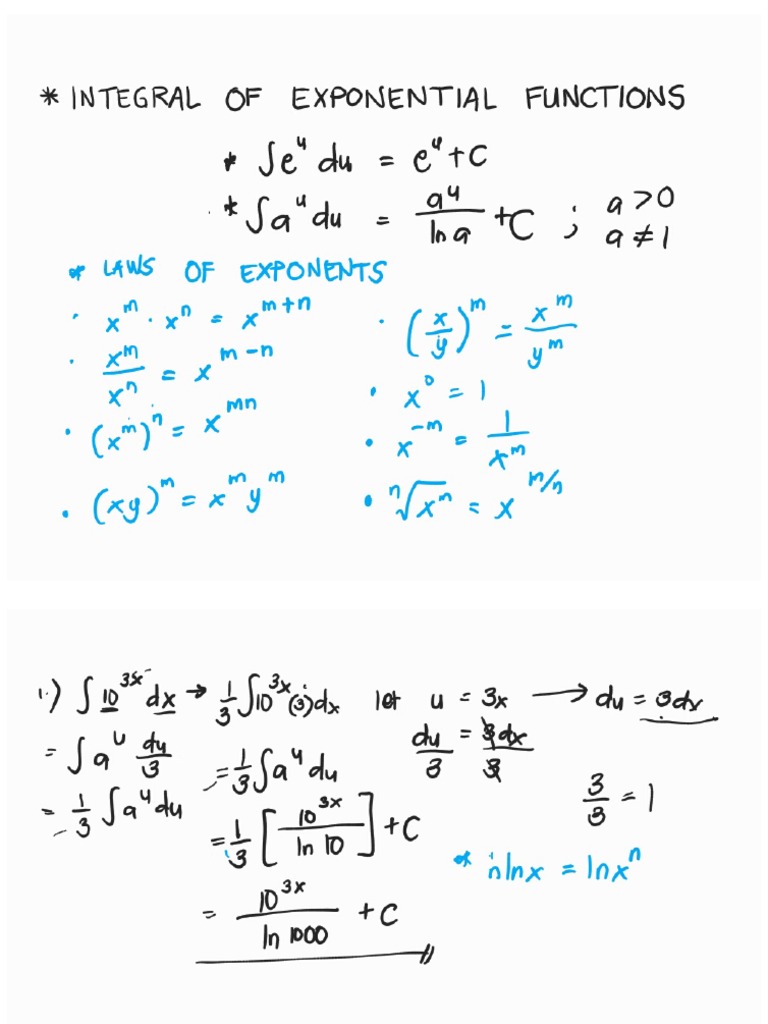 * INTEGRAL OF EXPONENTIAL FUNCTIONS
* ∫e^u du = e^u + C
* ∫a^u du = a^u / ln a + C ; a > 0
a ≠ 1
* LAWS OF EXPONENTS
• x^m · x^n = x^(m+n)
• x^m / x^n = x^(m-n)
• (x^m)^n = x^(mn)
• (xy)^m = x^m y^m
• (x/y)^m = x^m / y^m
• x^0 = 1
• x^(-m) = 1 / x^m
• ⁿ√x^m = x^(m/n)
1.) ∫ 10^(3x) dx → 1/3 ∫10^(3x) (3) dx let u = 3x → du = 3dx
= ∫ a^u du/3
= 1/3 ∫ a^u du
= 1/3 ∫ a^u du
= 1/3 [10^(3x) / ln 10] + C
= 10^(3x) / ln 1000 + C
du/3 = 3dx/3
3/3 = 1
* n ln x = ln x^n